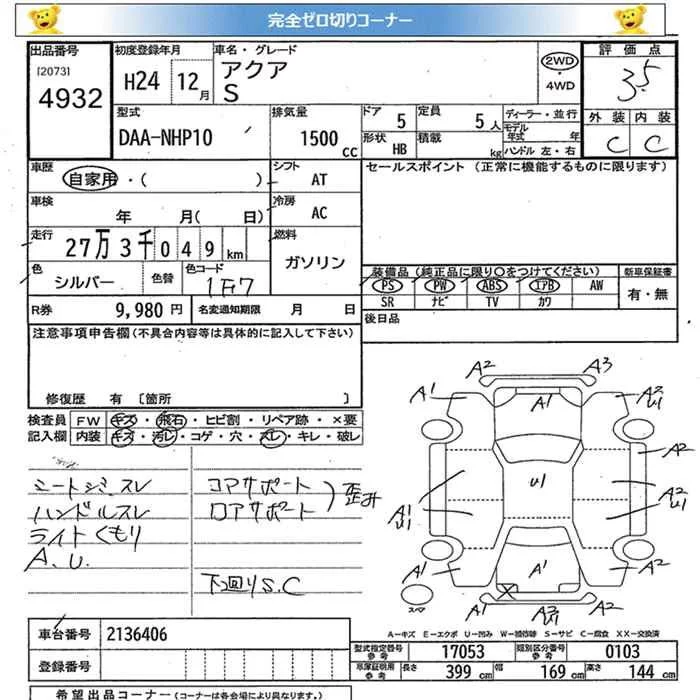 完全ゼロ切りコーナー
出品番号 初度登録年月 車名・グレード 評価点
[2073] H24 12月 アクア 2WD・4WD 3.5
4932 S 外装 内装
C C
型式 排気量 ドア 5 定員 5人 ディーラー・並行
DAA-NHP10 1500cc 形状 HB 積載 kg モデル年式 年
ハンドル 左・右
車歴 シフト セールスポイント (正常に機能するものに限ります)
自家用・( ) AT
車検 冷房
年 月( 日) AC
走行 燃料
27万3千049km ガソリン
色 色替 色コード 装備品(純正品に限り○をつけてください) 新車保証書
シルバー 1F7 PS PW ABS エアB AW 有・無
SR ナビ TV カワ
R券 9,980円 名変通知期限 月 日 後日品
注意事項申告欄(不具合内容等は具体的に記入して下さい)
修復歴 有 〔箇所 〕
検査員 FW キズ・飛石・ヒビ割・リペア跡・×要
記入欄 内装 キズ・汚レ・コゲ・穴・スレ・キレ・破レ
シートシミスレ コアサポート
ハンドルスレ ロアサポート 歪み
ライトくもり
A.U.
下回りS.C
A2 A3
A1 A1 A2 U1
A2
A1 U1 U1 A2 U1
A1 A1 A2
スペア X A1 A2 U1 A2
A-キズ E-エクボ U-凹み W-補修跡 S-サビ C-腐食 XX-交換済
車台番号 2136406
登録番号
型式指定番号 参考 17053 類別区分番号 参考 0103
車庫証明用 参考 長さ 399cm 幅 169cm 高さ 144cm
希望出品コーナー (コーナーは各会場により異なります。)